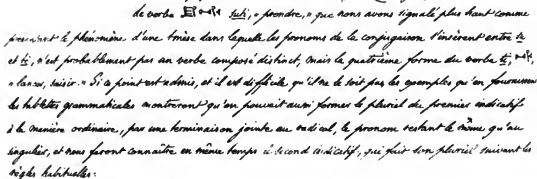 le verbe suti, « prendre, » que nous avons signalé plus haut comme
présentant le phénomène d'une tmèse dans laquelle les pronoms de la conjugaison s'insèrent entre su
et ti, n'est probablement pas un verbe composé distinct, mais la quatrième forme du verbe ti,
« lancer, saisir. » Si ce point est admis, et il est difficile qu'il ne le soit pas, les exemples qu'en fournissent
les tablettes grammaticales montreront qu'on pouvait aussi former le pluriel du premier indicatif
à la manière ordinaire, par une terminaison jointe au radical, le pronom restant le même qu'au
singulier, et nous feront connaître en même temps le second indicatif, qui fait son pluriel suivant les
règles habituelles :